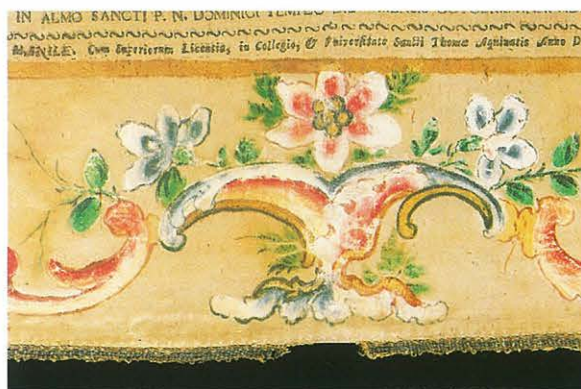 IN ALMO SANCTI P. N. DOMINICI TEMPLO
MANILÆ. Cum Superiorum Licentia, in Collegio, & Vniversitate Sancti Thomæ Aquinatis Anno D